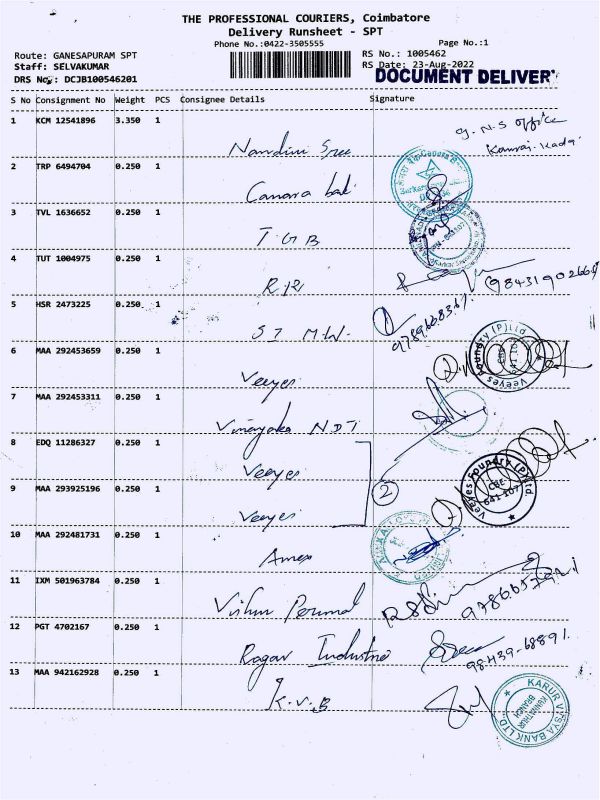 THE PROFESSIONAL COURIERS, Coimbatore
Delivery Runsheet - SPT
Phone No.:0422-3505555
Page No.:1
Route: GANESAPURAM SPT
RS No.: 1005462
Staff: SELVAKUMAR
RS Date: 23-Aug-2022
DRS No.: DCJB100546201
DOCUMENT DELIVER
S No Consignment No Weight PCS Consignee Details Signature
1 KCM 12541896 3.350 1
Nandini Sree
G.N.S office
2 TRP 6494704 0.250 1
Canara
3 TVL 1636652 0.250 1
T.G.B
4 TUT 1004975 0.250 1
5 HSR 2473225 0.250 1
6 MAA 292453659 0.250 1
Veeyes
Veeyes Foundry (P) Ltd
CBE
641 107
7 MAA 292453311 0.250 1
Vinayaka NDT
8 EDQ 11286327 0.250 1
Veeyes
2
9 MAA 293925196 0.250 1
Veeyes
Veeyes Foundry (P) Ltd
CBE
641 107
10 MAA 292481731 0.250 1
Amex
11 IXM 501963784 0.250 1
Vishnu Perumal
12 PGT 4702167 0.250 1
Ragav Industries
98439-68891
13 MAA 942162928 0.250 1
K.V.B
KARUR VYSYA BANK LTD.
BRANCH